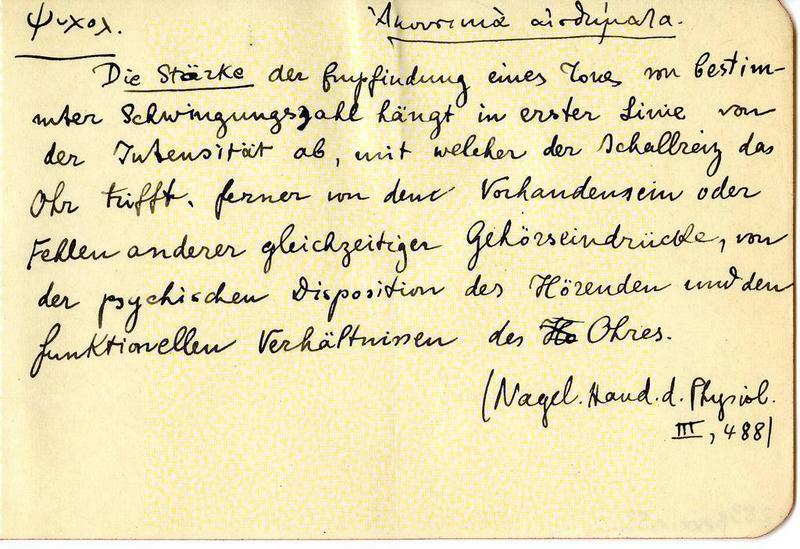 Ψυχολ. Ἀκουστικὰ αἰσθήματα.
Die Stärke der Empfindung eines Tones von bestim-
mter Schwingungszahl hängt in erster Linie von
der Intensität ab, mit welcher der Schallreiz das
Ohr trifft, ferner von dem Vorhandensein oder
Fehlen anderer gleichzeitiger Gehörseindrücke, von
der psychischen Disposition des Hörenden und den
funktionellen Verhältnissen des Ohres.
(Nagel. Hand. d. Physiol.
III, 488)